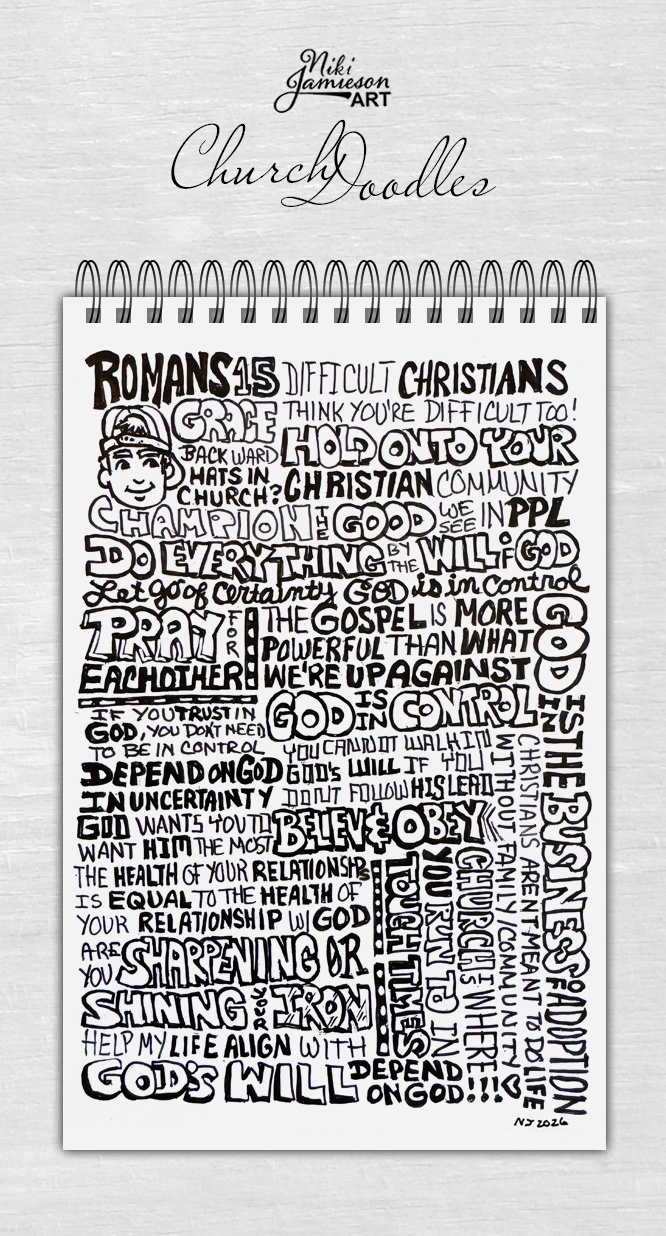 Niki
Jamieson
ART
Church Doodles
ROMANS 15 DIFFICULT CHRISTIANS
THINK YOU'RE DIFFICULT TOO!
GRACE
BACKWARD
HATS IN
CHURCH?
HOLD ONTO YOUR
CHRISTIAN COMMUNITY
CHAMPION THE GOOD WE SEE IN PPL
DO EVERYTHING BY THE WILL OF GOD
Let go of certainty GOD is in control
PRAY FOR
EACHOTHER
THE GOSPEL IS MORE
POWERFUL THAN WHAT
WE'RE UP AGAINST
IF YOU TRUST IN
GOD, YOU DON'T NEED
TO BE IN CONTROL
GOD IS IN CONTROL
DEPEND ON GOD
IN UNCERTAINTY
YOU CANNOT WALK IN
GOD'S WILL IF YOU
DON'T FOLLOW HIS LEAD
GOD WANTS YOU TO
WANT HIM THE MOST
BELEV& OBEY
THE HEALTH OF YOUR RELATIONSHPS
IS EQUAL TO THE HEALTH OF
YOUR RELATIONSHIP W/ GOD
ARE YOU SHARPENING OR
SHINING YOUR IRON
HELP MY LIFE ALIGN WITH
GOD'S WILL
CHURCH IS WHERE
YOU RUN TO IN
TOUGH TIMES
DEPEND
ON GOD!!!
GOD IS IN THE BUSINESS OF ADOPTION
CHRISTIANS AREN'T MEANT TO DO LIFE
WITHOUT FAMILY/COMMUNITY
NJ 2026